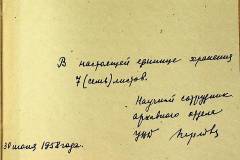 В настоящей единице хранения
7 (семь) листов.
Научный сотрудник
архивного отдела
30 июня 1958 года.